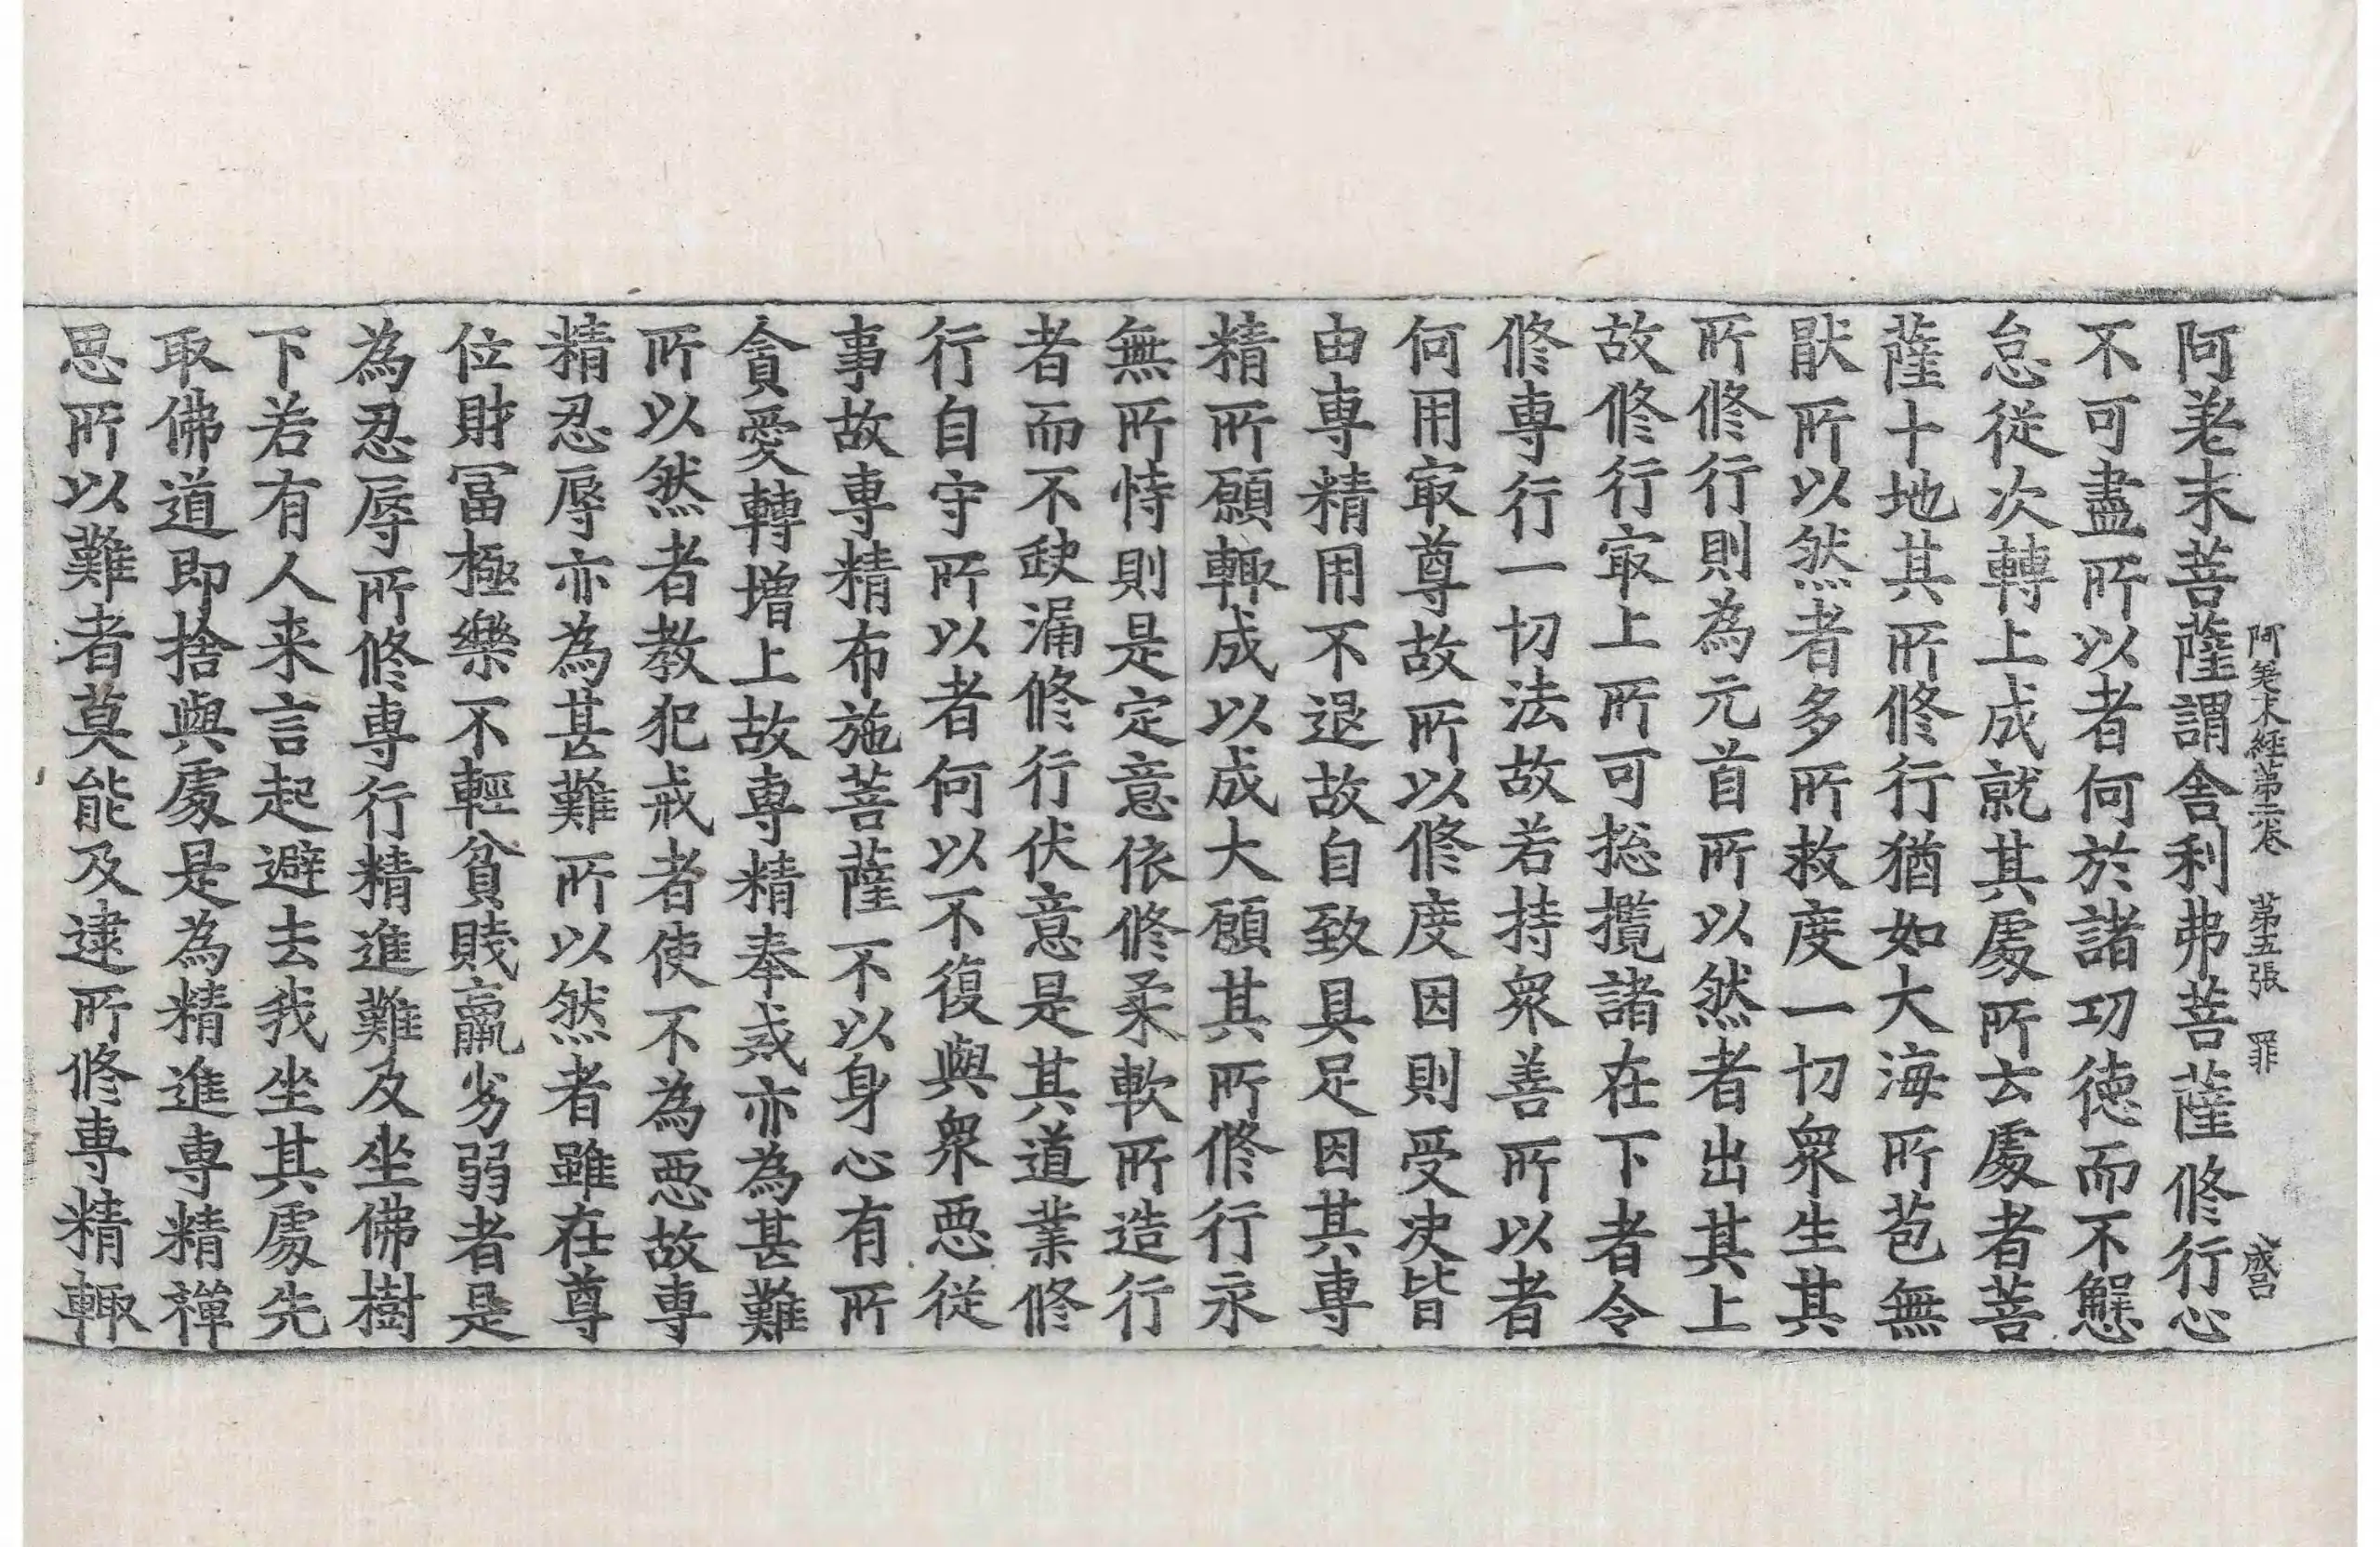 阿差末經第二卷 第五張 罪
阿差末菩薩謂舎利弗菩薩修行心
不可盡所以者何於諸功徳而不懈
怠從次轉上成就其處所去處者菩
薩十地其所修行猶如大海所苞無
猒所以然者多所救度一切衆生其
所修行則為元首所以然者出其上
故修行㝡上所可揔攬諸在下者令
修專行一切法故若持衆善所以者
何用㝡尊故所以修度因則受决皆
由專精用不退故自致具足因其專
精所願輙成以成大願其所修行永
無所恃則是定意依修柔軟所造行
者而不缺漏修行伏意是其道業修
行自守所以者何以不復與衆惡從
事故專精布施菩薩不以身心有所
貪愛轉增上故專精奉戒亦為甚難
所以然者教犯戒者使不為惡故專
精忍辱亦為甚難所以然者雖在尊
位財冨極樂不輕貧賤羸劣弱者是
為忍辱所修專行精進難及坐佛樹
下若有人来言起避去我坐其處先
取佛道即捨與處是為精進專精禪
思所以難者莫能及逮所修專精輙